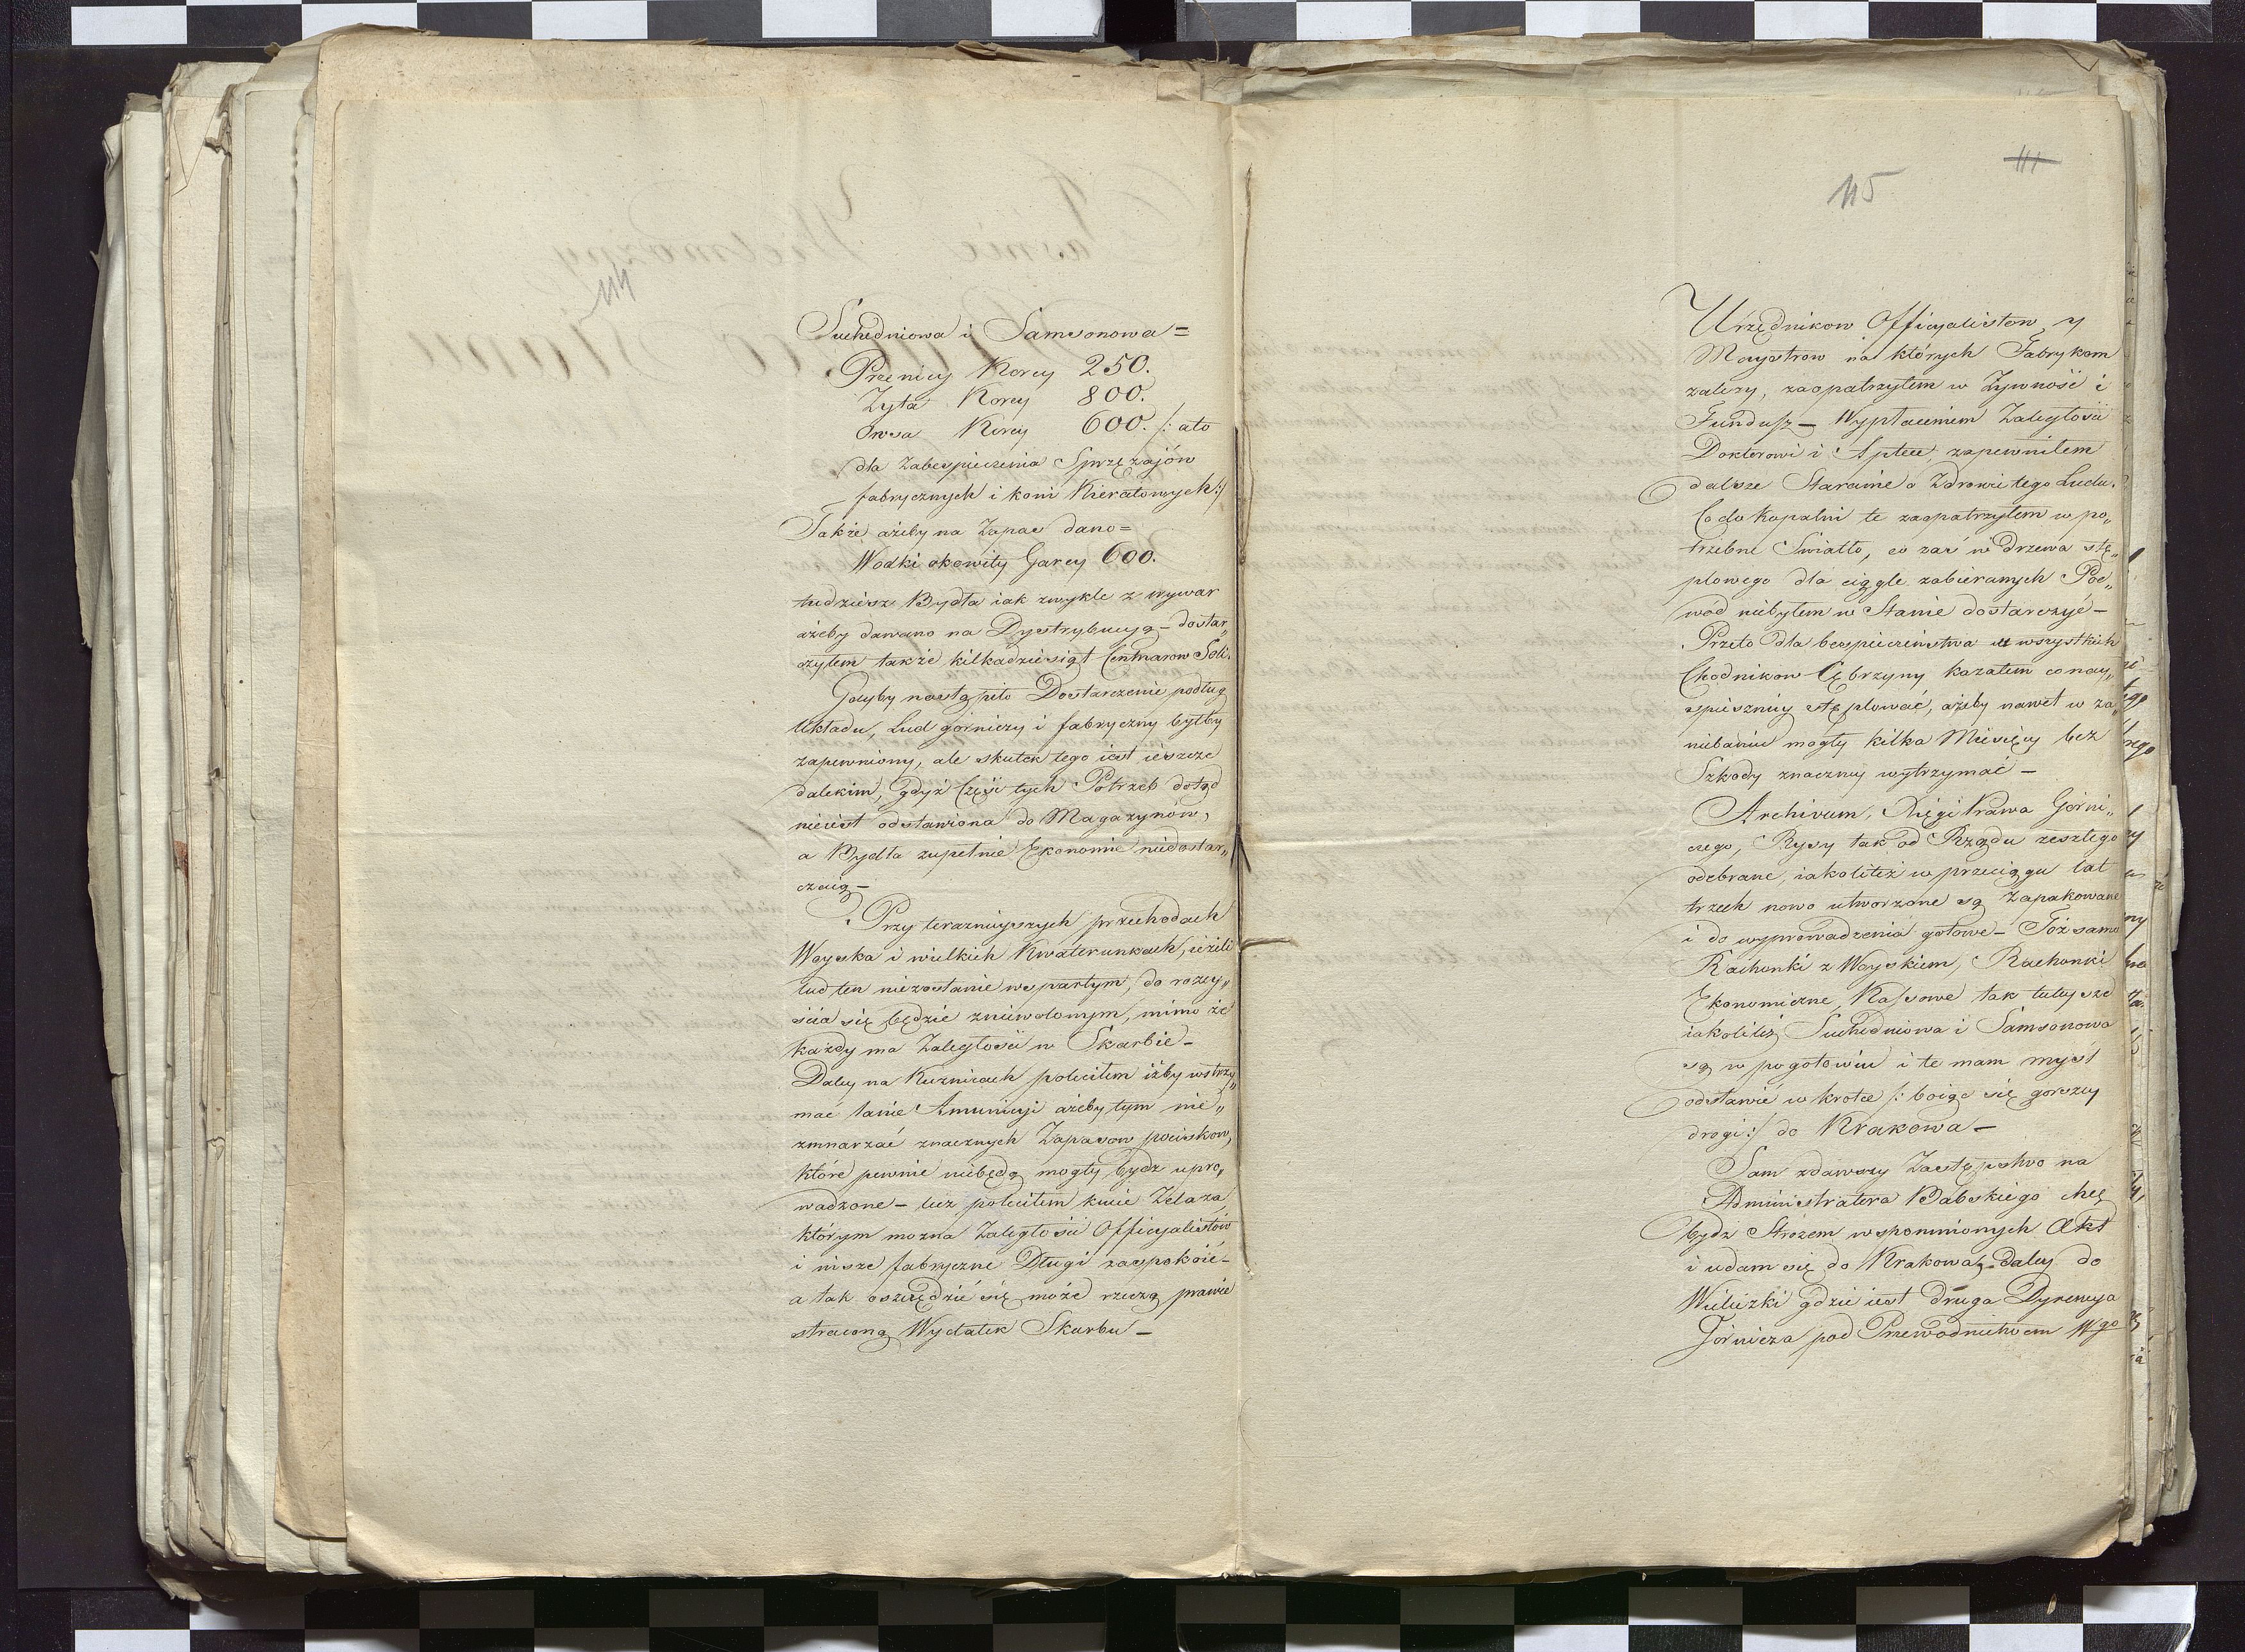 Suchedniowa i Samsonowa=
Przenicy Korcy 250.
Zyta Korcy 800.
Owsa Korcy 600. /: a to
dla Zabespieczenia Sprzężajów
fabrycznych i koni Kieratowych:/
Także ażeby na Zapas dano=
Wodki okowity Garcy 600.
tudziesz Bydła iak zwykle z wywar
ażeby dawano na Dystrybucyą – dostar„
czyłem także kilkadziesiąt Centnarow Soli.
Gdyby nastąpiło Dostarczenie podług
Układu, Lud górniczy i fabryczny byłby
zapewniony, ale skutek tego iest ieszcze
dalekim, gdyż Część tych Potrzeb dotąd
nieiest odstawiona do Magazynów,
a Bydła zupełnie Ekonomie niedostar„
czaią –
Przy teraznieyszych przechodach
Woyska i wielkich Kwaterunkach, ieżeli
lud ten niezostanie wspartym, do rozey„
ścia się będzie zniewolonym, mimo że
każdy ma Zaległości w Skarbie –
Daley na Kuznicach poleciłem iżby wstrzy„
mać lanie Amunicyi ażeby tym nie„
zmnarzać znacznych Zapasow pociskow,
które pewnie niebędą mogły bydz upro„
wadzone – lecz poleciłem kucie Zelaza,
którym mozna Zaległości Officyalistów
i insze fabryczne Długi zaspokoić –
a tak oszczędzić się może rzeczą prawie
straconą Wydatek Skarbu –
111
115
Urzędnikow Officyalistow, y
Maystrow na których Fabrykom
zalezy, zaopatrzyłem w Zywność i
Fundusz – Wypłaceniem Zaległości
Doktorowi i Aptece, zapewniłem
dalsze Staranie o Zdrowie tego Ludu.
Co do Kopalni te zaopatrzyłem w po„
trzebne Swiatło, co zaś w Drzewa stę„
plowego dla ciągle zabieranych Pod„
wod niebyłem w Stanie dostarczyć –
Przeto dla bespieczeństwa wszystkich
Chodnikow Cębrzyny kazałem co nay„
spieszniey stęplować, ażeby nawet w za„
niebaniu mogły kilka Miesięcy bez
Szkody znaczney wytrzymać –
Archivum, Xięgi Prawa Górni„
czego, Rysy tak od Rządu zeszłego
odebrane, iakoliteż w przeciągu lat
trzech nowo utworzone są Zapakowane
i do wyprowadzenia gotowe – Tóż samo
Rachunki z Woyskiem, Rachunki
Ekonomiczne, Kassowe tak tuteysze
iakoliteż Suchedniowa i Samsonowa
są w pogotowiu i te mam myśl
odstawić w krotce /: boiąc się gorszey
drogi:/ do Krakowa –
Sam zdawszy Zastępstwo na
Administratora Babskiego chcę
bydz Strózem wspomnionych Akt
i udam się do Krakowa, – daley do
Wieliczki gdzie iest druga Dyrekcya
Górnicza pod Przewodnictwem Wgo